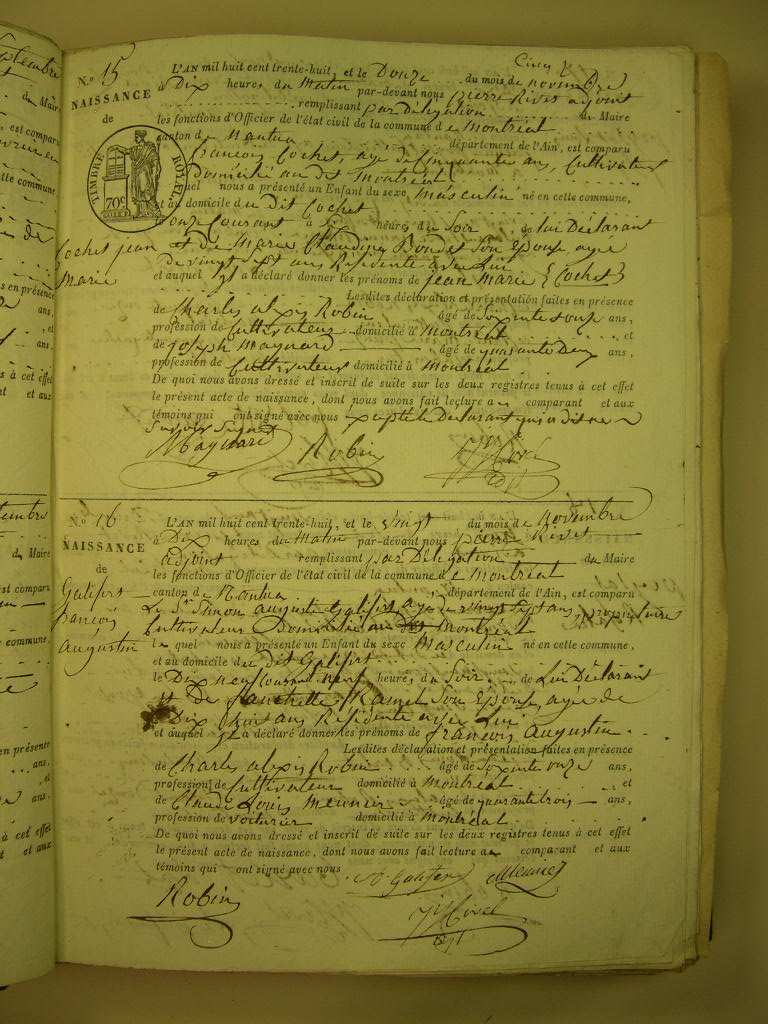 N.º 15
NAISSANCE
de
TIMBRE ROYAL
70c
Cochet jean
Marie
L'AN mil huit cent trente-huit, et le Douze du mois de novembre
à Dix heures du Matin par-devant nous pierre Rivet adjoint
remplissant par Délégation du Maire
les fonctions d'Officier de l'état civil de la commune de Montréal
canton de Nantua département de l'Ain, est comparu
françois Cochet, agé de Cinquante ans, Cultivateur
Domicilié au dit Montréal
quel nous a présenté un Enfant du sexe Masculin né en cette commune,
et au domicile du Dit Cochet
le onze Courant à heures du Soir de lui Déclarant
et de Marie Claudine Bondet Son épouse agée
de vingt ans Résidente avec Lui
et auquel il a déclaré donner les prénoms de jean Marie (Cochet)
Lesdites déclaration et présentation faites en présence
de Charles alexis Robin âgé de Soixante onze ans,
profession de Cultivateur domicilié à Montréal et
de joseph Maynard âgé de quarante Deux ans,
profession de Cultivateur domicilié à Montréal
De quoi nous avons dressé et inscrit de suite sur les deux registres tenus à cet effet
le présent acte de naissance, dont nous avons fait lecture au comparant et aux
témoins qui ont signé avec nous excepté le Déclarant qui a dit ne
Savoir Signer
Maynard Robin
N.º 16
NAISSANCE
de
Galifert
françois
augustin
L'AN mil huit cent trente-huit, et le vingt du mois de novembre
à Dix heures du Matin par-devant nous pierre Rivet
adjoint remplissant par Délégation du Maire
les fonctions d'Officier de l'état civil de la commune de Montréal
canton de Nantua département de l'Ain, est comparu
Le Sr Simon auguste Galifert, agé de vingt Sept ans, propriétaire
Cultivateur Domicilié au dit Montréal
le quel nous a présenté un Enfant du sexe Masculin né en cette commune,
et au domicile du dit Galifert
le Dix neuf Courant neuf heures du Soir de Lui Déclarant
et De franchette Ramel Son Epouse, agée de
Dix huit ans Résidente avec Lui
et auquel il a déclaré donner les prénoms de françois augustin
Lesdites déclaration et présentation faites en présence
de Charles alexis Robin âgé de Soixante onze ans,
profession de Cultivateur domicilié à Montréal et
de Claude Louis Meunier âgé de quarante trois ans,
profession de voiturier domicilié à Montréal
De quoi nous avons dressé et inscrit de suite sur les deux registres tenus à cet effet
le présent acte de naissance, dont nous avons fait lecture au comparant et aux
témoins qui ont signé avec nous
Robin